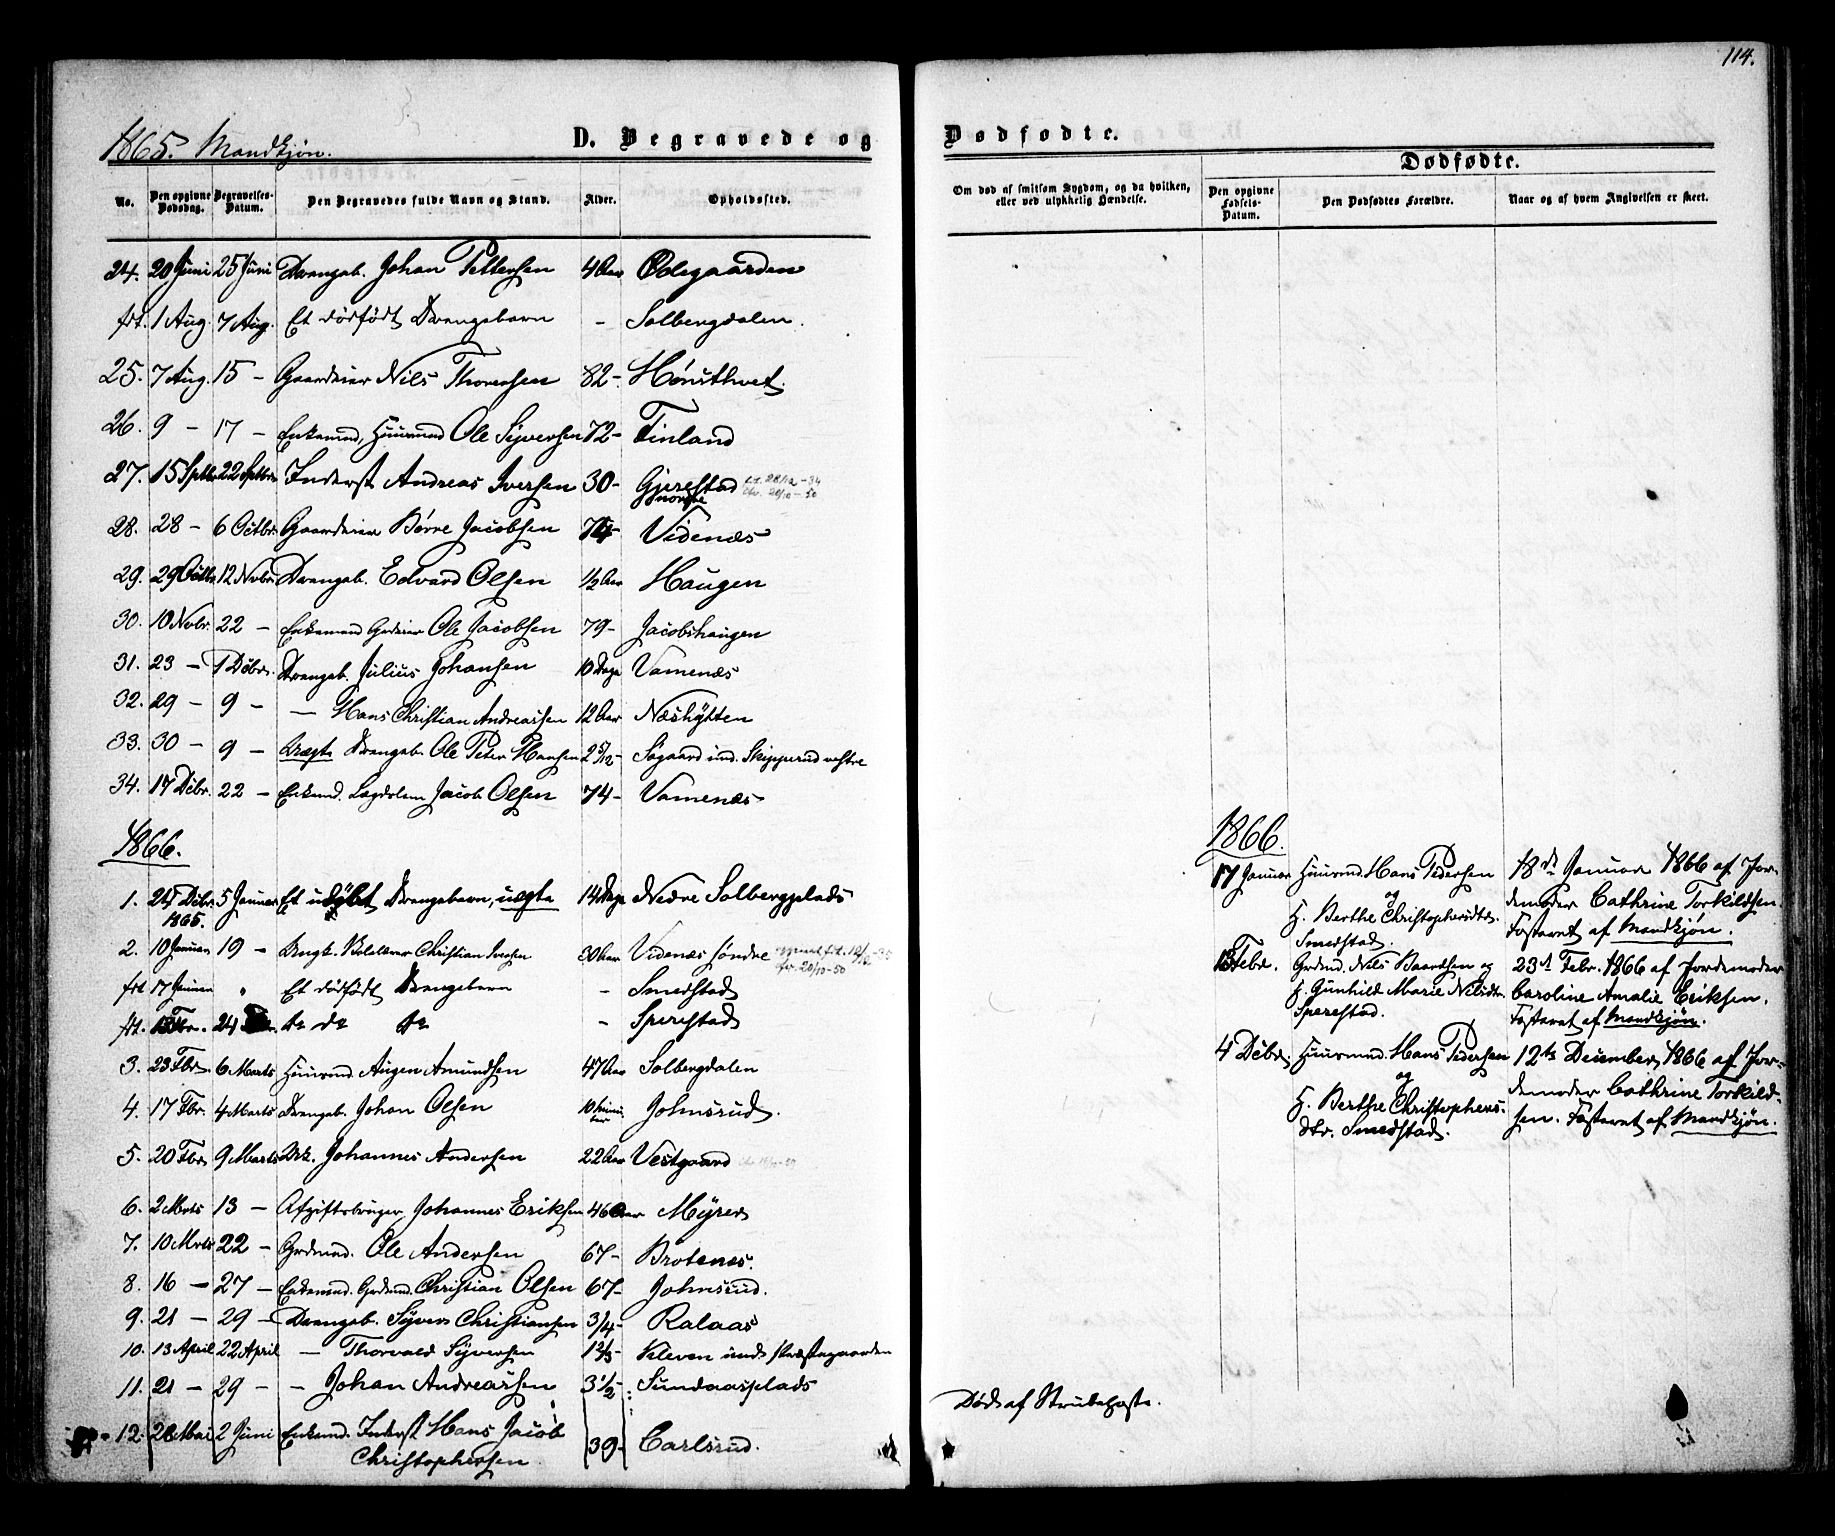 114.
1865. Mandkjøn.
D. Begravede og Dødfødte.
Dødfødte.
No. Den opgivne Dødsdag. Begravelses-Datum. Den Begravedes fulde Navn og Stand. Alder. Opholdssted.
Om død af smitsom Sygdom, og da hvilken, eller ved ulykkelig Hændelse. Den opgivne Fødsels-Datum. Den Dødfødtes Forældre. Naar og af hvem Angivelsen er skeet.
24. 20 Juni 25 Juni Drengeb. Johan Pettersen 4 Aar Ødegaarden
frt. 1 Aug. 7 Aug. Et dödfödt Drengebarn - Solbergdalen.
25. 7 Aug. 15 - Gaardeier Nils Thorensen 82 - Hönsthvet.
26. 9 - 17 - Enkemnd, Huusmnd Ole Syversen 72 - Finland
27. 15 Sptbr 22 Sptbr Inderst Andreas Iversen 30 - Gjerestad
28. 28 - 6 Octbr. Gaardeier Börre Jacobsen 74 - Videnæs
29. 29 Octbr 12 Nvbr. Drengeb. Edvard Olsen 1/2 Aar Haugen
30. 10 Nvbr. 22 - Enkemand Grdeier Ole Jacobsen 79 - Jacobshaugen
31. 23 - 1 Dcbr. Drengeb. Julius Johansen 10 Dage Vamenæs
32. 29 - 9 - - Hans Christian Andreassen 12 Aar Næshytten
33. 30 - 9 - Uægte Drengeb. Ole Peter Hansen 2 5/12 - Søgaard und. Skipperud vestre
34. 17 Dcbr. 22 - Enkemd. Lægdslem Jacob Olsen 74 - Vamenæs
1866.
1. 24 Dcbr. 1865. 5 Januar Et udöbt Drengebarn, uægte 14 Dage Nedre Solbergplads
2. 10 Januar 19 - Christian Iversen 30 Aar Videnæs søndre
frt 17 Januar " Et dödfödt Drengebarn - Smedstad
frt. 13 Fbr. 24 Do do Do - Sperestad
3. 23 Fbr. 6 Marts Huusmnd. Augen Amundsen 47 Aar Solbergdalen
4. 17 Fbr. 4 Marts Drengeb. Johan Olsen 10 Johnsrud.
5. 20 Fbr. 9 Marts Johannes Andersen 22 Aar Vestgaard
6. 2 Mrts 13 - Afgiftsbruger Johannes Eriksen 46 Aar Myrer
7. 10 Mrts 22 - Grdmnd. Ole Andersen 67 - Brotenæs.
8. 16 - 27 - Enkemnd. Grdmnd. Christian Olsen 67 - Johnsrud.
9. 21 - 29 - Drengeb. Syver Christiansen 3/4 - Ralaas
10. 13 April 22 April - Thorvald Syversen 1 2/3 - Kleven und. Præstegaarden
11. 21 - 29 - - Johan Andreassen 3 1/2 - Sundaasplads
Död af Strubehoste.
12. 26 Mai 2 Juni Enkemd. Inderst Hans Jacob Christophersen 39 - Carlsrud.
1866.
17 Januar Huusmd. Hans Pedersen og H. Berthe Christophersdtr. Smedstad. 18de Januar 1866 af Jordemoder Cathrine Torkildsen. Fosteret af Mandkjøn.
13 Febr. Grdmd. Nils Baardsen og H. Gunhild Marie Nilsdtr. Sperestad. 23de Febr. 1866 af Jordemoder Caroline Amalie Eriksen. Fosteret af Mandkjøn.
4 Dcbr. Huusmnd. Hans Pedersen og H. Berthe Christophersdtr. Smedstad. 12te December 1866 af Jordemoder Cathrine Torkildsen. Fosteret af Mandkjøn.